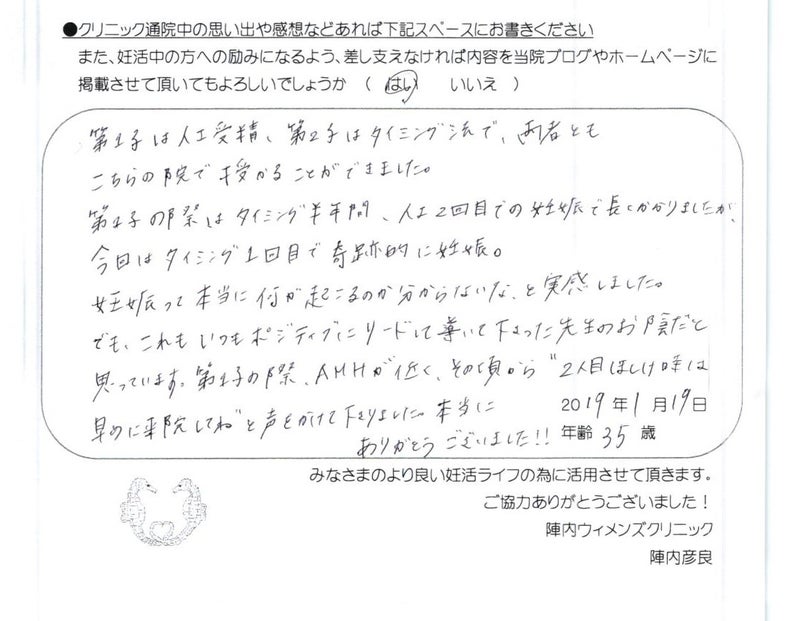 ●クリニック通院中の思い出や感想などあれば下記スペースにお書きください
また、妊活中の方への励みになるよう、差し支えなければ内容を当院ブログやホームページに
掲載させて頂いてもよろしいでしょうか ( はい いいえ )
第1子は人工受精、第2子はタイミング法で、両者とも
こちらの院で授かることができました。
第1子の際はタイミング半年間、人工2回目での妊娠で長くかかりましたが、
今回はタイミング1回目で奇跡的に妊娠。
妊娠って本当に何が起こるのか分からないな、と実感しました。
でも、これもいつもポジティブにリードして導いて下さった先生のお陰だと
思っています。第1子の際、AMHが低く、その頃から"2人目ほしい時は
早めに来院してね"と声をかけて下さりました。本当に
ありがとうございました!!
2019年1月19日
年齢 35 歳
みなさまのより良い妊活ライフの為に活用させて頂きます。
ご協力ありがとうございました!
陣内ウィメンズクリニック
陣内彦良